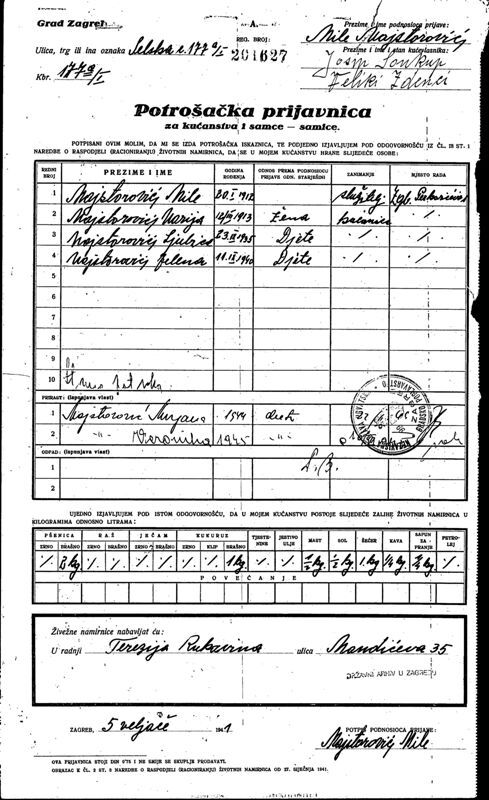 Grad Zagreb
— A. —
Prezime i ime podnosioca prijave:
Ulica, trg ili ina oznaka Selska c. 177 a/I
REG. BROJ:
Mile Majstorović
Kbr. 177a/I
201627
Prezime i ime i stan kućevlasnika:
Josip Soukup
Veliki Zdenci
Potrošačka prijavnica
za kućanstva i samce — samice.
POTPISANI OVIM MOLIM, DA MI SE IZDA POTROŠAČKA ISKAZNICA, TE PODJEDNO IZJAVLJUJEM POD ODGOVORNOŠĆU IZ ČL. 18 ST. 1
NAREDBE O RASPODJELI (RACIONIRANJU) ŽIVOTNIH NAMIRNICA, DA SE U MOJEM KUĆANSTVU HRANE SLIJEDEĆE OSOBE:
REDNI BROJ PREZIME I IME GODINA ROĐENJA ODNOS PREMA PODNOSIOCU PRIJAVE ODN. STARJEŠINI ZANIMANJE MJESTO RADA
1 Majstorović Mile 20.I 1912
2 Majstorović Marija 1913 žena ·/·
3 Majstorović Ljubica 1935 Djete ·/· ·/·
4 Majstorović Jelena 11.II 1940 Djete ·/· ·/·
5
6
7
8
9
10
PRIRAST: (Ispunjava vlast)
1 Majstorović 1944
2 -"- Veronika 1945 -"-
ODPAD: (Ispunjava vlast)
UJEDNO IZJAVLJUJEM POD ISTOM ODGOVORNOŠĆU, DA U MOJEM KUĆANSTVU POSTOJE SLIJEDEĆE ZALIHE ŽIVOTNIH NAMIRNICA U
KILOGRAMIMA ODNOSNO LITRAMA:
PŠENICA RAŽ JEČAM KUKURUZ TJESTENINE JESTIVO ULJE MAST SOL ŠEĆER KAVA SAPUN ZA PRANJE PETROLEJ
ZRNO BRAŠNO ZRNO BRAŠNO ZRNO BRAŠNO ZRNO KLIP BRAŠNO
·/· kg ·/· ·/· ·/· ·/· ·/· ·/· 1 kg ·/· ·/· ½ kg. ½ kg. 1 kg ¼ kg kg. ·/·
POVEĆANJE
Živežne namirnice nabavljat ću:
U radnji Terezija Rukavina ulica Mandićeva 35
DRŽAVNI ARHIV U ZAGREBU
ZAGREB, 5 veljače 1941
POTPIS PODNOSIOCA PRIJAVE:
Majstorović Mile
OVA PRIJAVNICA STOJI DIN 0'75 I NE SMIJE SE SKUPLJE PRODAVATI.
OBRAZAC K ČL. 2 ST. 3 NAREDBE O RASPODJELI (RACIONIRANJU) ŽIVOTNIH NAMIRNICA OD 27. SIJEČNJA 1941.